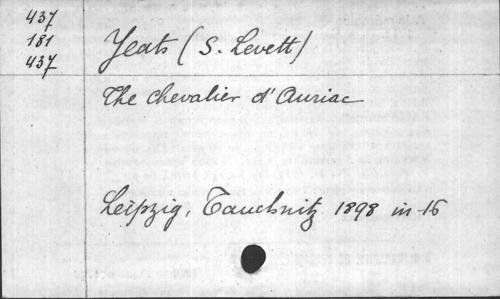 437
181
437
Yeats (S. Levett)
The Chevalier d'Auriac
Leipzig, Tauchnitz 1898 in-16